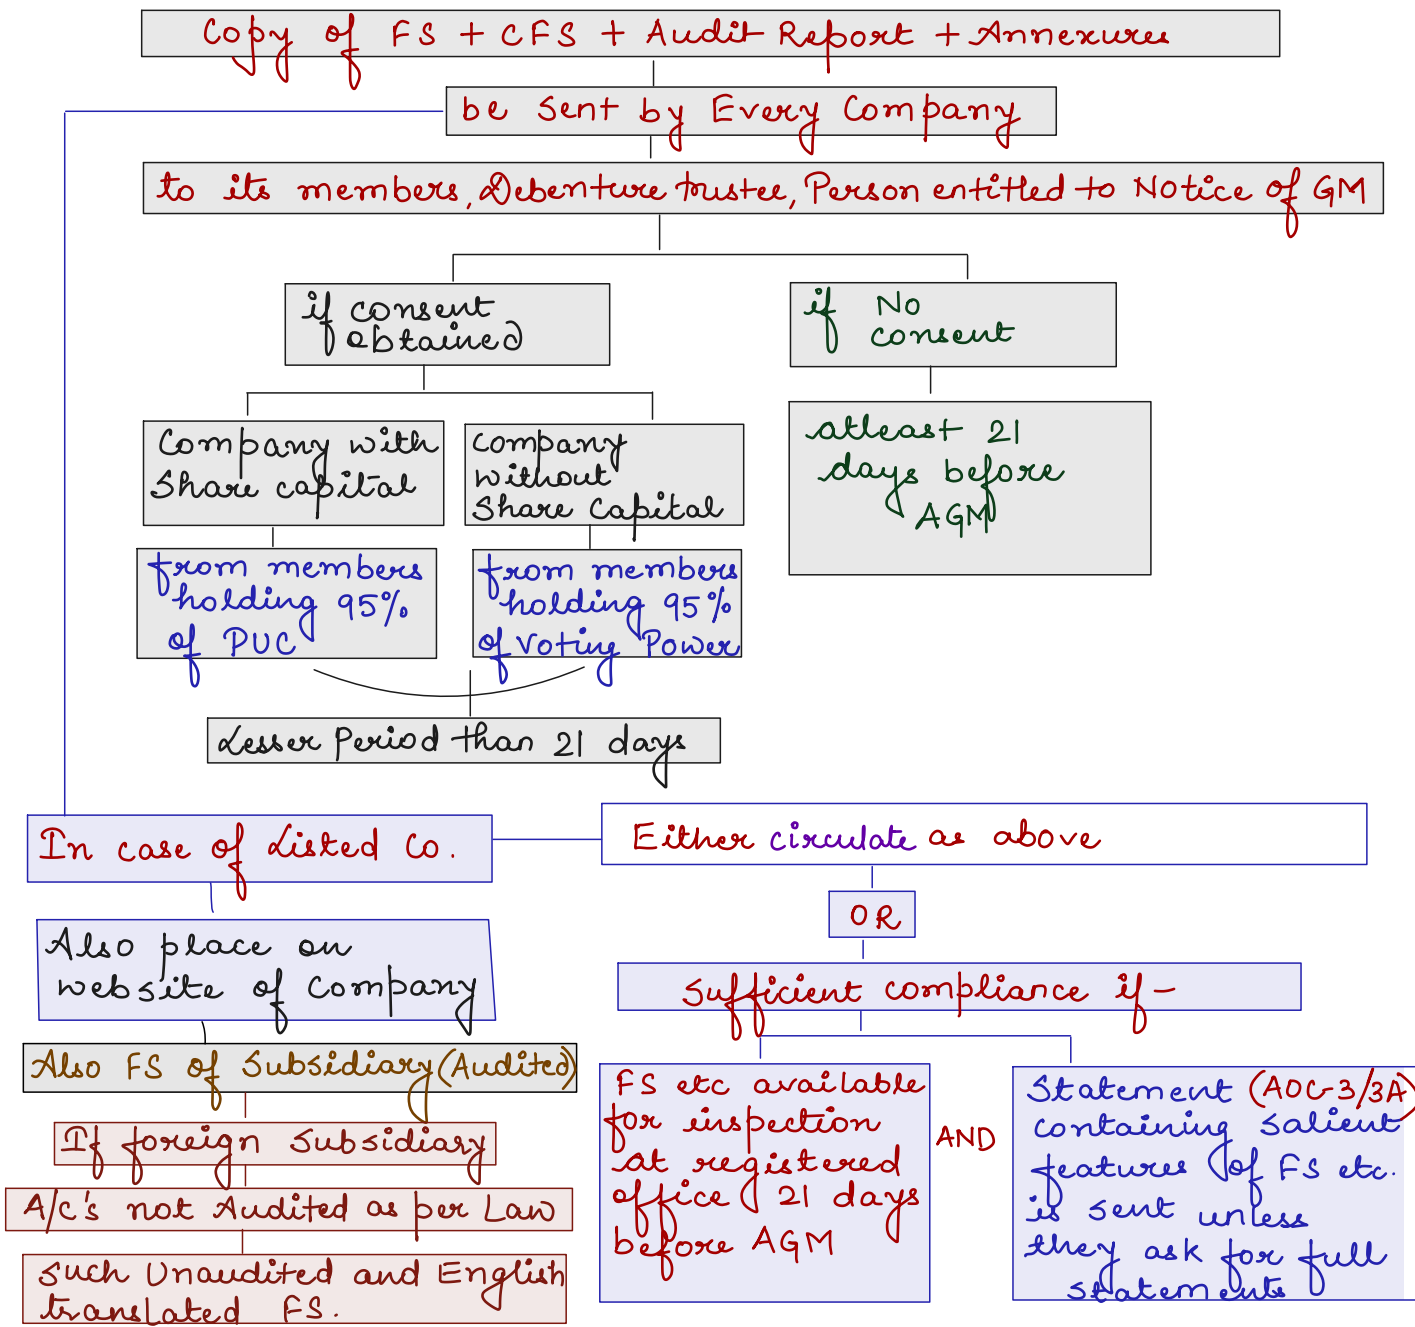 Copy of FS + CFS + Audit Report + Annexures
be sent by Every Company
to its members, Debenture trustee, Person entitled to Notice of GM
if consent
obtained
if No
consent
Company with
Share capital
Company
without
Share Capital
atleast 21
days before
AGM
from members
holding 95%
of PUC
from members
holding 95%
of Voting Power
Lesser Period than 21 days
In case of Listed Co.
Either circulate as above
OR
Also place on
website of Company
Sufficient compliance if -
Also FS of Subsidiary (Audited)
If foreign Subsidiary
A/c's not Audited as per Law
Such Unaudited and English
translated FS.
FS etc available
for inspection
at registered
office 21 days
before AGM
AND
Statement (AOC-3/3A)
containing Salient
features of FS etc.
is sent unless
they ask for full
statements